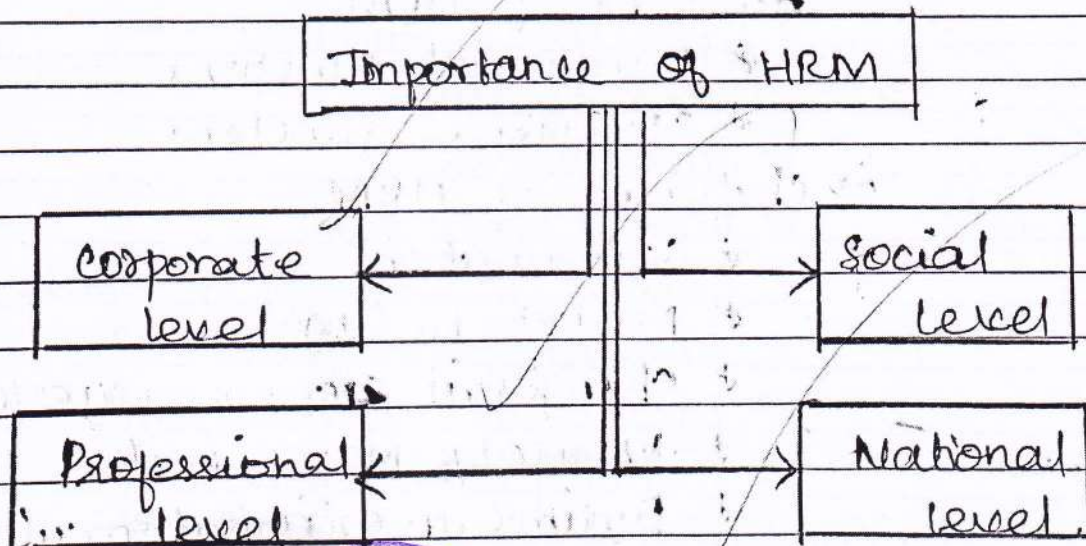 Importance of HRM
Corporate
level
Social
level
Professional
level
National
level.